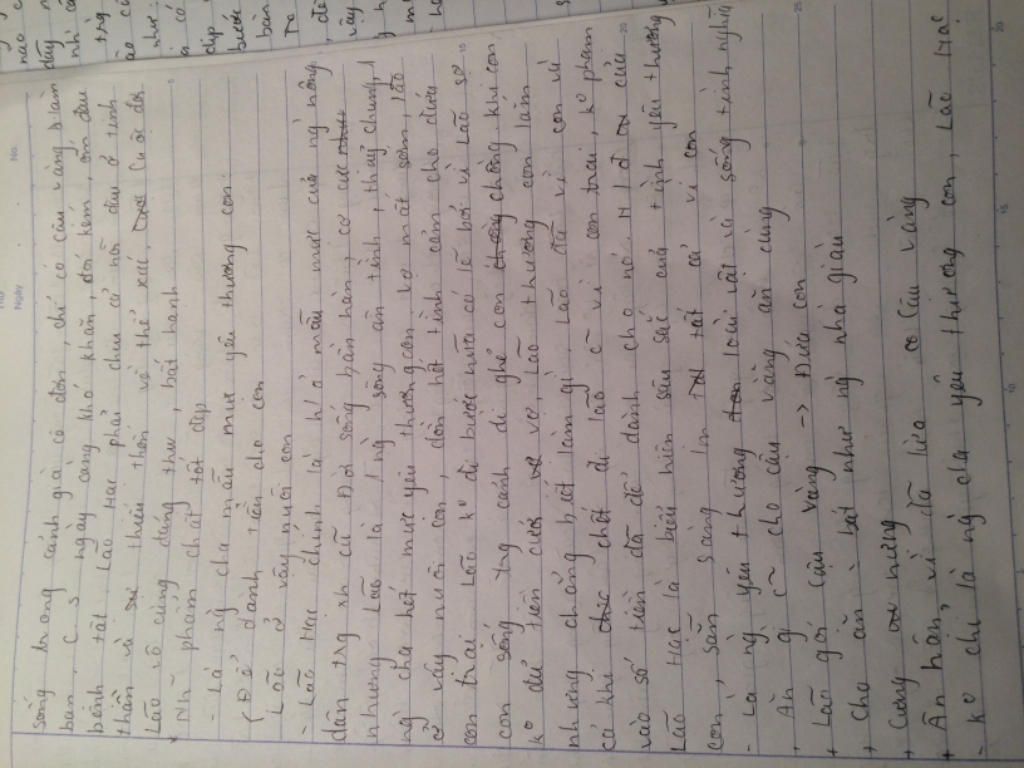 sống trong cảnh già cô đơn, chỉ có cậu vàng làm
bạn, c s ngày càng khó khăn, đói kém, ốm đau
bệnh tật. Lão Hạc phải chịu cả nỗi đau ở tinh
thần và sự thiếu thốn về thể xác. Cuộc đời
Lão vô cùng đáng thư, bất hạnh
Nh~ phẩm chất tốt đẹp
- Là ng cha mẫu mực yêu thương con.
( Để dành tiền cho con
Lão ở vậy nuôi con
- Lão Hạc chính là h/ả mẫu mực của ng nông
dân trg xh cũ. Đời sống bần hàn, cơ cực
nhưng Lão là 1 ng sống ân tình, thủy chung, 1
ng cha hết mực yêu thương con. Vợ mất sớm, lão
ở vậy nuôi con, dồn hết tình cảm cho đứa
con trai. Lão ko đi bước nữa có lẽ bởi vì Lão sợ
con sống trg cảnh dì ghẻ con chồng. Khi con
ko đủ tiền cưới vợ, Lão thương con lắm
nhưng chẳng biết làm gì. Lão đã vì con và
cả khi chết đi lão c~ vì con trai, ko phạm
vào số tiền đã để dành cho nó. H/đ của
Lão Hạc là biểu hiện sâu sắc của tình yêu thương
con, sẵn sàng tất cả vì con
- Là ng yêu thương loài vật và sống tình nghĩa
+ Ăn gì c~ cho cậu vàng ăn cùng
+ Lão gọi Cậu vàng -> Đứa con
+ Cho ăn = bát như ng nhà giàu
+ Cưng nựng
+ Ân hận vì đã lừa Cậu vàng
- Ko chỉ là ng cha yêu thương con, Lão Hạc
No.
Ngày
5
15
20
25
10
15
20